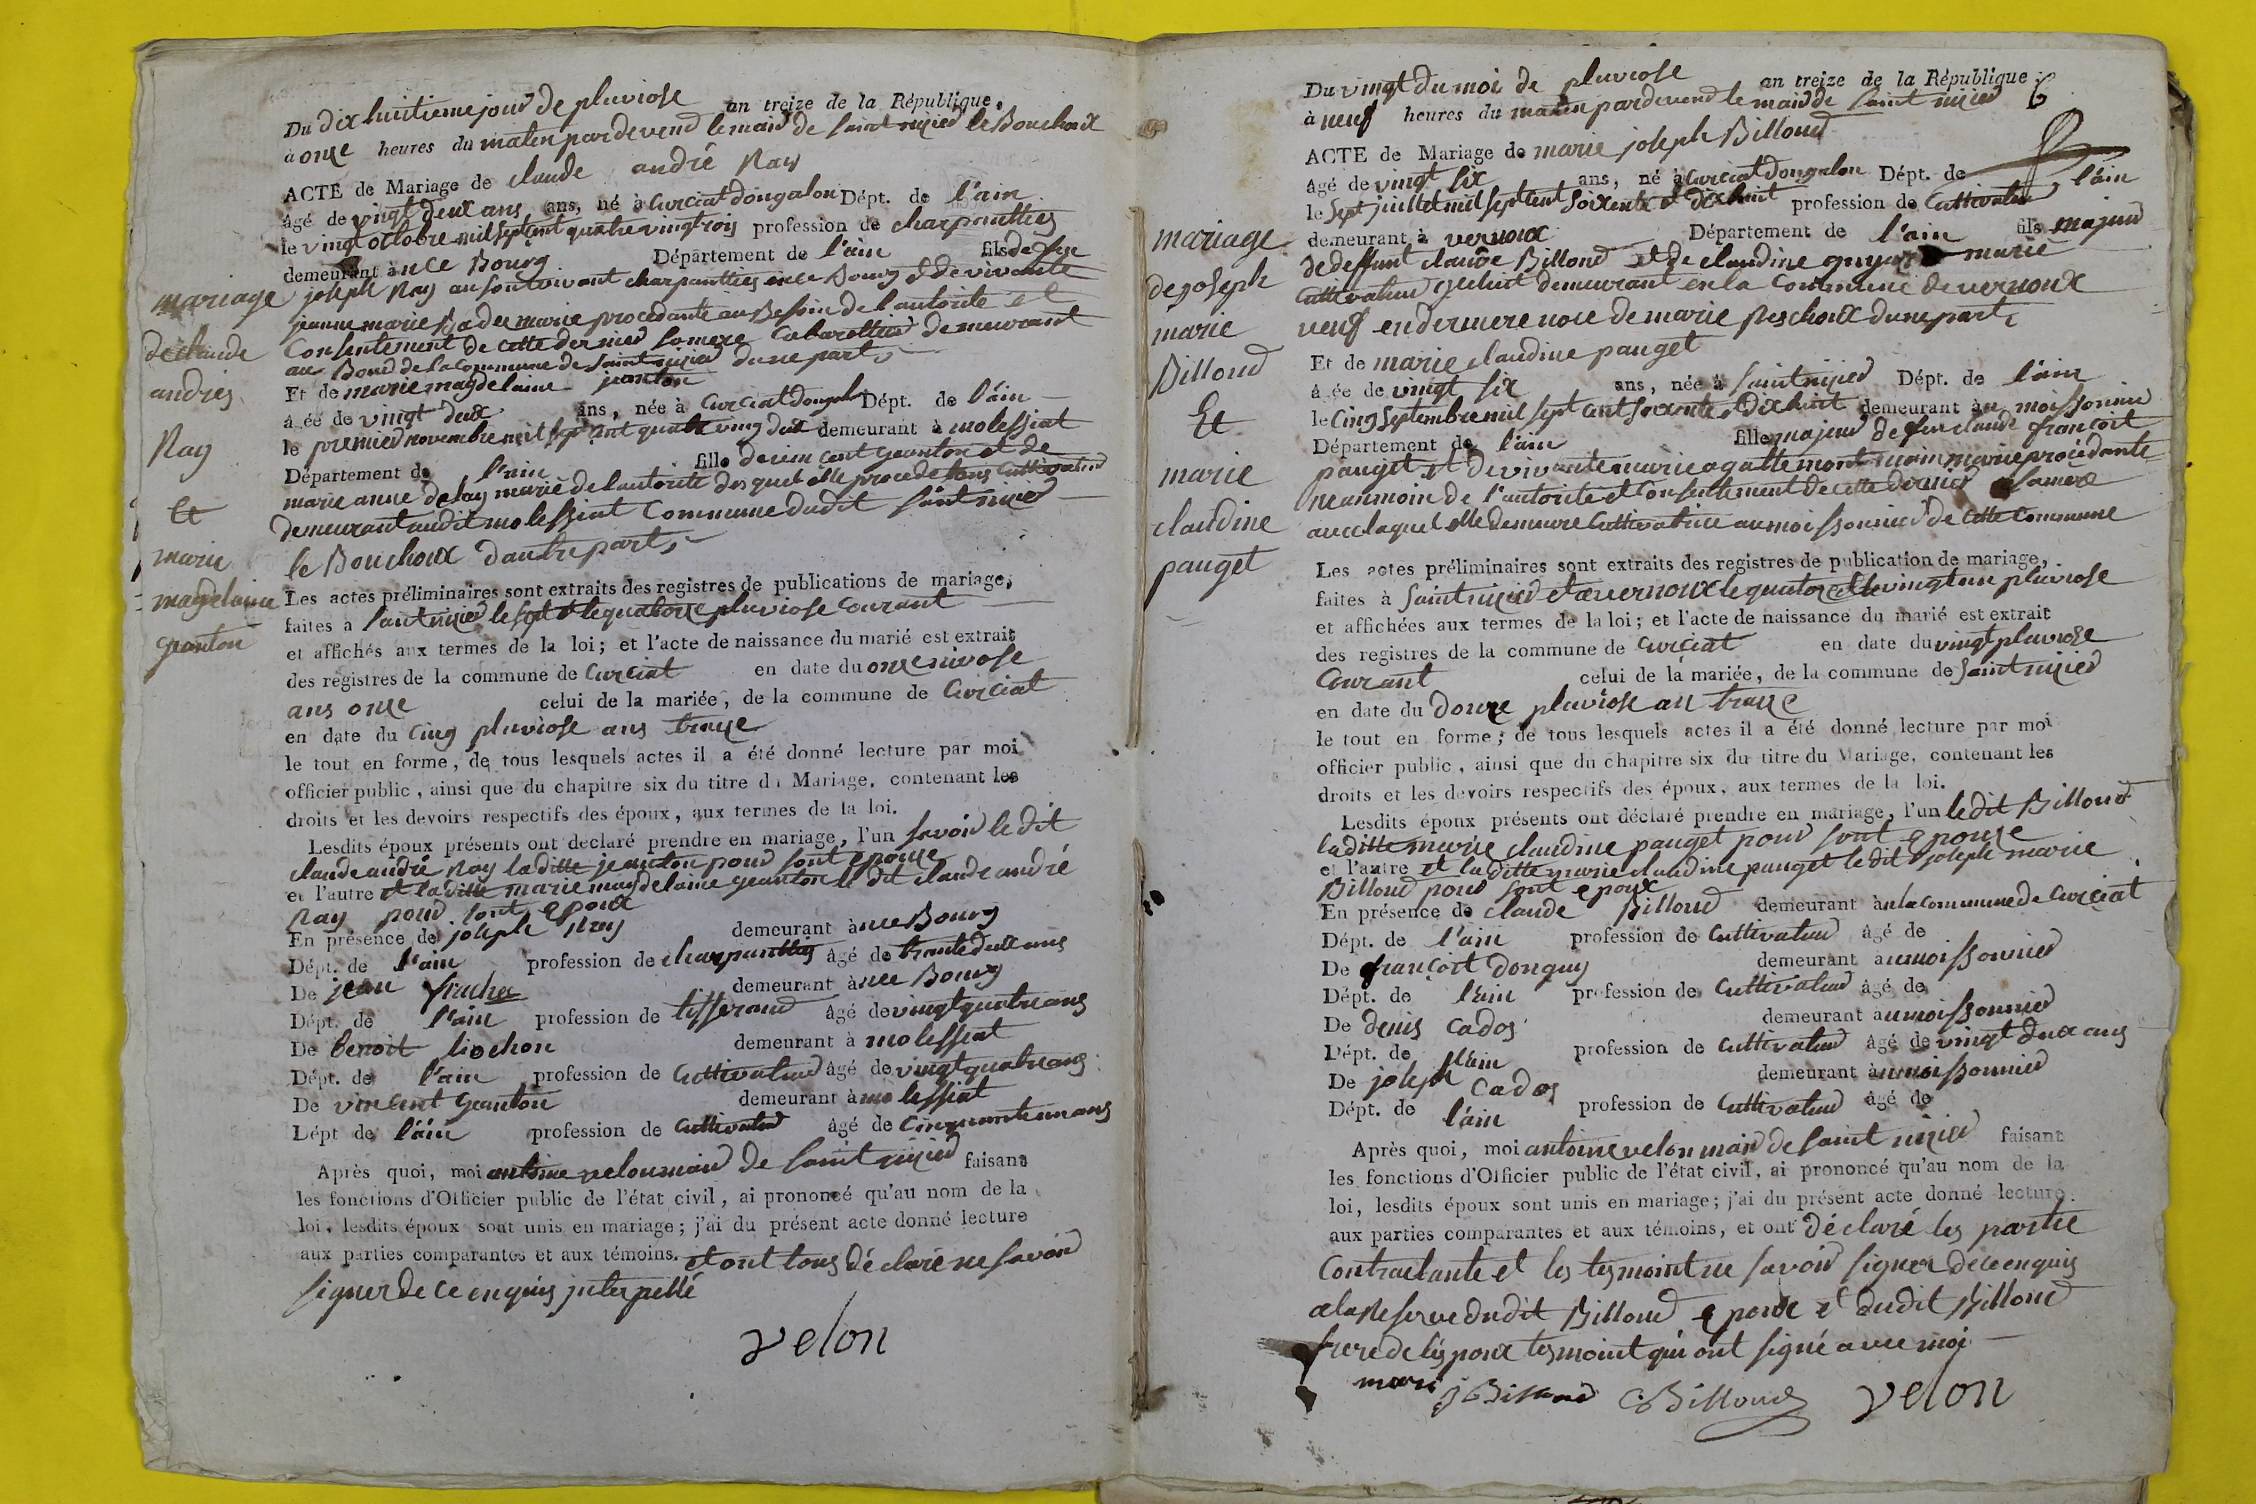 Du dix huitieme jour de pluviose an treize de la République,
à onze heures du matin pardevend le maird de saint nizied le Bouchoux
ACTE de Mariage de claude andré Ray
âgé de vingt deux ans ans, né à Curciat dongalon Dépt. de l'ain
le vingt octobre mil septcent quatre vingt trois profession de charpantties
demeurant à nce Bourg Département de l'ain fils de feu
joseph Ray au sont vivant charpantties ence Bourg & de vivante
jeanne marie procedante au Bessoin de l'autorité et
Consentement de cette dernier sa mere Cabarettier demeurant
au Bourd de la Commune de saint nizied dune part
Et de marie magdelaine jeanton
âgée de vingt deux ans, née à Curciat dongalon Dépt. de l'áin
le premier novembre mil sept cent quatre ving deux demeurant à molessiat
Département de l'ain fille de vincent geanton et de
marie anne delay marié de l'autorité des quel elle procede tous Cultivateud
demeurant audit molessiat Commune dudit saint nizied
le Bouchoux dautre part
Les actes préliminaires sont extraits des registres de publications de mariage,
faites à saint nizied le sept & le quatorze pluviose Courant
et affichés aux termes de la loi; et l'acte de naissance du marié est extrait
des registres de la commune de Curciat en date du onze nivose
ans onze celui de la mariée, de la commune de Curciat
en date du Cinq pluviose ans traize
le tout en forme, de tous lesquels actes il a été donné lecture par moi
officier public, ainsi que du chapitre six du titre du Mariage, contenant les
droits et les devoirs respectifs des époux, aux termes de la loi.
Lesdits époux présents ont déclaré prendre en mariage, l'un savoir le dit
claude andré Ray la ditte jeanton pour sont epouze
et l'autre et la ditte marie magdelaine geanton le dit claude andré
Ray pour sont epoux
En présence de joseph Rey demeurant à nce Bourg
Dépt. de l'ain profession de charpantties âgé de trante deux ans
De jean demeurant à nce Bourg
Dépt. de l'ain profession de tisseraud âgé de vingt quatre ans
De benoit liochon demeurant à molessiat
Dépt. de l'ain profession de Cultivateud âgé de vingt quatre ans
De vincent geanton demeurant à molessiat
Dépt de l'áin profession de Cultivateud âgé de Cinquante un ans
Après quoi, moi antoine velon maird de saint nizied faisant
les fonctions d'Officier public de l'état civil, ai prononcé qu'au nom de la
loi, lesdits époux sont unis en mariage; j'ai du présent acte donné lecture
aux parties comparantes et aux témoins. et ont tous déclaré ne savoir
signer de ce enquis jnterpellé
velon
mariage
de claude
andres
Ray
Et
marie
magdelaine
geanton
Du vingt du moi de pluviose an treize de la République;
à neuf heures du matin pardevend le maird de saint nizied
ACTE de Mariage de marie joseph Billoud
âgé de vingt six ans, né à Curciat Dongalon Dépt. de l'áin
le sept juillet mil septcent soixante et dix huit profession de Cultivateud
demeurant à vernoux Département de l'ain fils majeur
de deffunt claude Billoud et de claudine marie
Cultivateud demeurant en la Commune de vernoux
veuf en derniere noce de marie Peschoux dune part
Et de marie claudine pauget
âgée de vingt six ans, née à saint nizied Dépt. de l'áin
le Cinq septembre mil sept cent soixente & dix huit demeurant au moissonnier
Département de l'ain fille majeur de feu claude françoit
pauget et de vivante marie agatte marie procédante
neanmoin de l'autorité et Consentement de cette dernier sa mere
avec laquel elle demeure Cultivatrice au moissonnied de cette Commune
Les actes préliminaires sont extraits des registres de publication de mariage,
faites à saint nizied et à vernoux le quatorze & le vingt un pluviose
et affichées aux termes de la loi; et l'acte de naissance du marié est extrait
des registres de la commune de Curciat en date du vingt pluviose
Courant celui de la mariée, de la commune de saint nizied
en date du douze pluviose an traize
le tout en forme; de tous lesquels actes il a été donné lecture par moi
officier public, ainsi que du chapitre six du titre du Mariage, contenant les
droits et les devoirs respectifs des époux, aux termes de la loi.
Lesdits époux présents ont déclaré prendre en mariage, l'un le dit Billoud
la ditte marie claudine pauget pour sont epouze
et l'autre et la ditte marie claudine pauget le dit joseph marie
Billoud pour sont epoux
En présence de claude Billoud demeurant à n la commune de Curciat
Dépt. de l'ain profession de Cultivateud âgé de
De françoit Donguy demeurant au moissonnied
Dépt. de l'ain profession de Cultivateud âgé de
De denis Cados demeurant au moissonnied
Dépt. de l'ain profession de Cultivateud âgé de vingt deux ans
De joseph Cados demeurant au moissonnied
Dépt. de l'áin profession de Cultivateud âgé de
Après quoi, moi antoine velon maird de saint nizied faisant
les fonctions d'Officier public de l'état civil, ai prononcé qu'au nom de la
loi, lesdits époux sont unis en mariage; j'ai du présent acte donné lecture
aux parties comparantes et aux témoins, et ont déclaré les partie
Contractante et les tesmoint ne savoir signer de ce enquis
a la Reserve dudit Billoud epoux et dudit Billoud
frere de l'epoux tesmoint qui ont signé avec moi
marie j Billoud C Billoud velon
mariage
de joseph
marie
Billoud
Et
marie
claudine
pauget